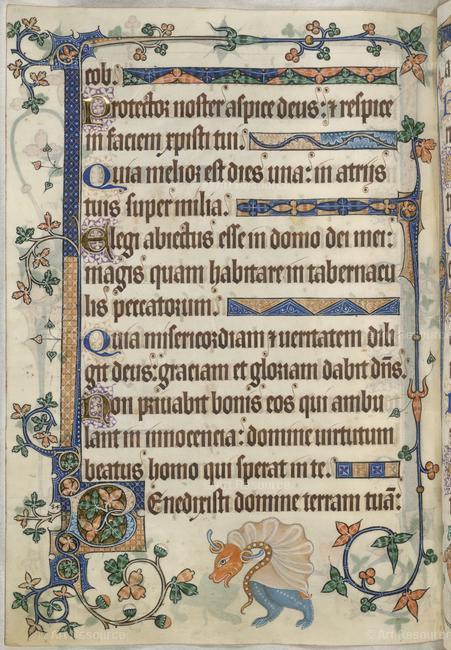 cob.
Protector noster aspice deus: ⁊ respice
in faciem xpisti tui.
Quia melior est dies una: in atriis
tuis super milia.
Elegi abiectus esse in domo dei mei:
magis quam habitare in tabernacu
lis peccatorum.
Quia misericordiam ⁊ ueritatem dili
git deus: graciam et gloriam dabit dn̄s.
Non priuabit bonis eos qui ambu
lant in innocencia: domine uirtutum
beatus homo qui sperat in te.
Benedixisti domine terram tuā:
© Art Resource
© Art Resource